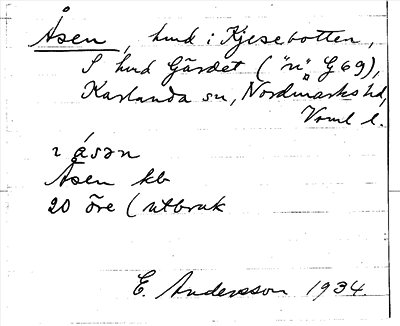 Åsen, hmd i Kjesebotten,
S hmd Gärdet ("n" G 69),
Karlanda sn, Nordmarks hd,
Vrml l.
ı åsən
Åsen kb
20 öre (utbruk
E. Andersson 1934.